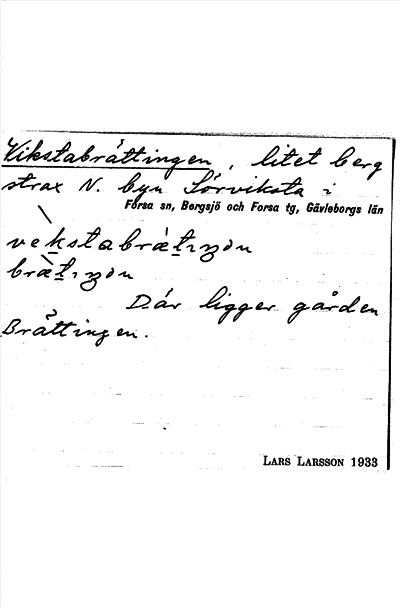 Vikstabråttingen, litet berg
strax N. byn Sörviksta i
Forsa sn, Bergsjö och Forsa tg, Gävleborgs län
vekstabrætıŋən
brætıŋən
Där ligger gården
Bråttingen.
LARS LARSSON 1933